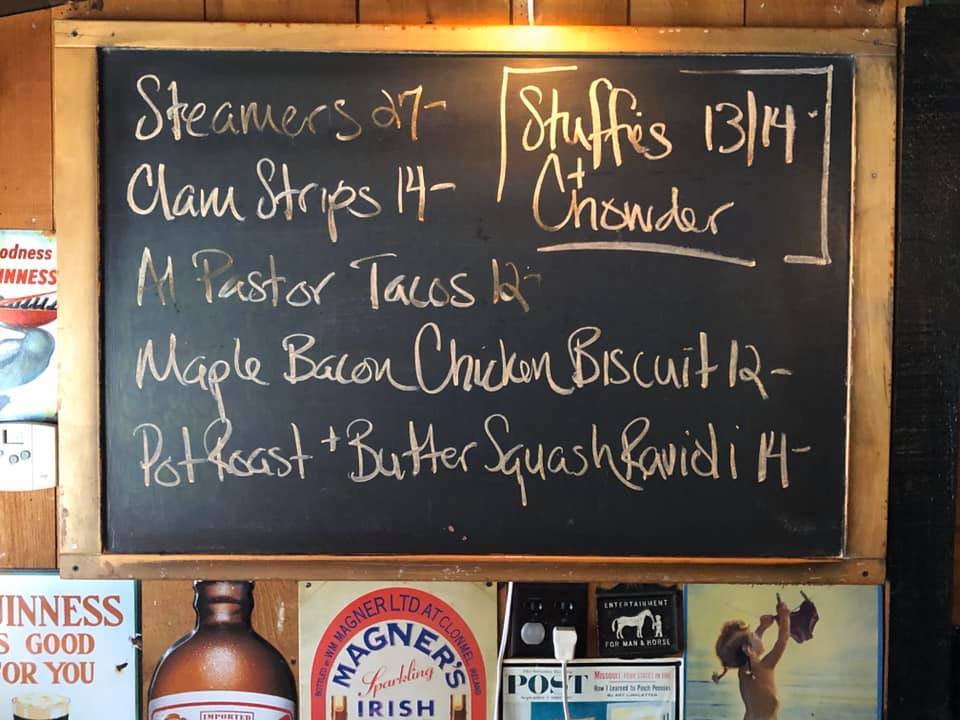 Steamers 27-
Clam Strips 14-
Al Pastor Tacos 12-
Maple Bacon Chicken Biscuit 12-
Pot Roast + Butter Squash Ravioli 14-
Stuffies 13/14-
+
Chowder
odness
INNESS
UINNESS
S GOOD
FOR YOU
IMPORTED
BOTTLED BY WM MAGNER LTD AT CLONMEL, IRELAND
MAGNER'S
Sparkling
IRISH
ENTERTAINMENT
FOR MAN & HORSE
POST
MISSOURI
How I Learned to Pinch Pennies
By ART LINKLETTER